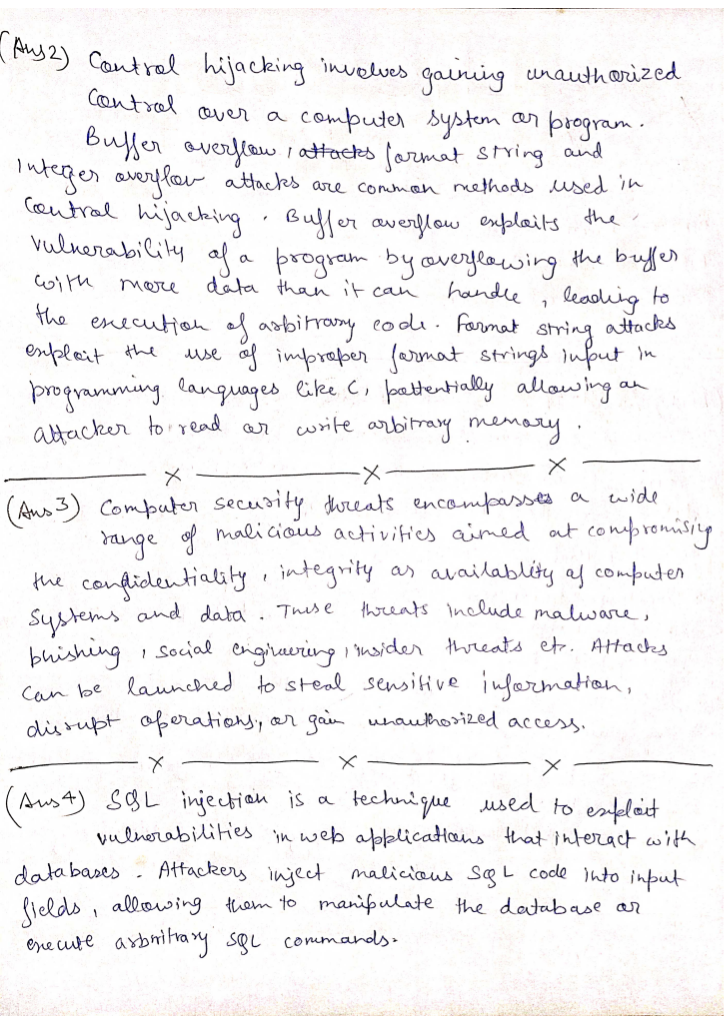 (Ans2) Control hijacking involves gaining unauthorized
Control over a computer system or program.
Buffer overflow, attacks format string and
Integer overflow attacks are common methods used in
Control hijacking. Buffer overflow exploits the
vulnerability of a program by overflowing the buffer
with more data than it can handle, leading to
the execution of arbitrary code. Format string attacks
exploit the use of improper format strings input in
programming languages like C, pottentially allowing an
attacker to read or write arbitrary memory.
(Ans3) Computer security threats encompasses a wide
range of malicious activities aimed at compromising
the confidentiality, integrity or availablity of computer
Systems and data. These threats include malware,
phishing, social engineering, insider threats etc. Attacks
can be launched to steal sensitive information,
disrupt operations, or gain unauthorized access.
(Ans4) SQL injection is a technique used to exploit
vulnerabilities in web applications that interact with
databases. Attackers inject malicious SQL code into input
fields, allowing them to manipulate the database or
execute arbritrary SQL commands.